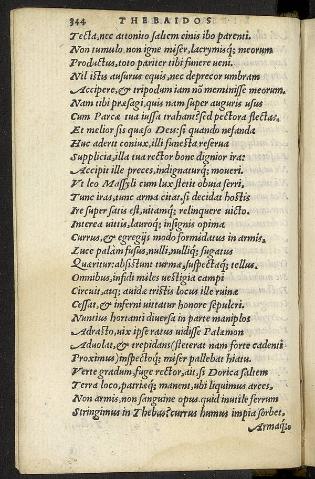 344 THEBAIDOS
Tecta, nec attonito saltem cinis ibo parenti.
Non tumulo, non igne miser, lacrymisq; meorum
Productus, toto pariter tibi funere veni.
Nil istis ausurus equis, nec deprecor umbram
Accipere, & tripodum iam nõ meminisse meorum.
Nam tibi præsagi, quis nam super auguris usus
Cum Parcæ tua iussa trahant? sed pectora flectas,
Et melior sis quæso Deus: si quando nefanda
Huc aderit coniux, illi funesta reserua
Supplicia, illa tua rector bone dignior ira:
Accipit ille preces, indignaturq; moueri.
Vt leo Massyli cum lux stetit obuia ferri,
Tunc iras, tunc arma citat, si decidat hostis
Ire super satis est, uitamq; relinquere uicto.
Interea uittis, lauroq; insignis opima
Currus, & egregijs modo formidatus in armis,
Luce palàm fusus, nulli, nulliq; fugatus
Quæritur: absistunt turmæ, suspectaq; tellus.
Omnibus, infidi miles uestigia campi
Circuit, atq; auidæ tristis locus ille ruinæ
Cessat, & inferni uitatur honore sepulcri.
Nuntius hortanti diuersa in parte maniplos
Adrasto, uix ipse ratus uidisse Palæmon
Aduolat, & trepidans (steterat nam forte cadenti
Proximus) inspectoq; miser pallebat hiatu.
Verte gradum, fuge rector, ait, si Dorica saltem
Terra loco, patriæq; manent, ubi liquimus arces,
Non armis, non sanguine opus. quid inutile ferrum
Stringimus in Thebas? currus humus impia sorbet,
Armaq;